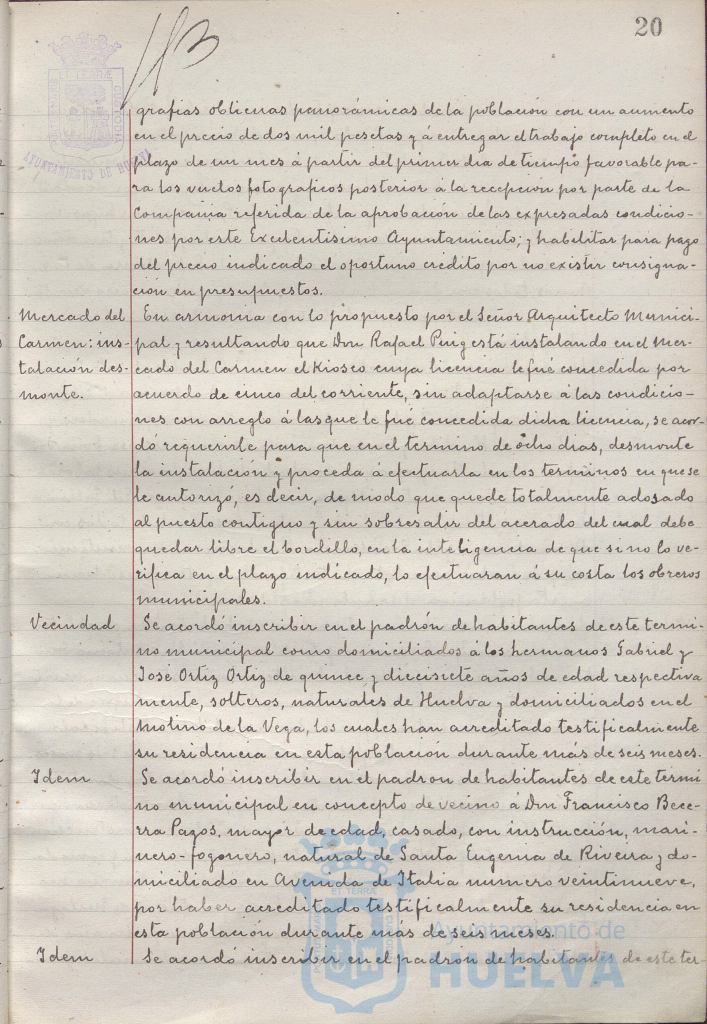 20
113
AYUNTAMIENTO DE HUELVA
grafias oblicuas panorámicas de la población con un aumento
en el precio de dos mil pesetas y á entregar el trabajo completo en el
plazo de un mes á partir del primer dia de tiempo favorable pa-
ra los vuelos fotograficos posterior á la recepcion por parte de la
Compañia referida de la aprobación de las expresadas condicio-
nes por este Excelentisimo Ayuntamiento; y habilitar para pago
del precio indicado el oportuno crédito por no existir consigna-
ción en presupuestos.
Mercado del
Carmen: ins-
talación des-
monte.
En armonia con lo propuesto por el Señor Arquitecto Munici-
pal y resultando que Don Rafael Puig está instalando en el Mer-
cado del Carmen el Kiosco cuya licencia le fué concedida por
acuerdo de cinco del corriente, sin adaptarse á las condicio-
nes con arreglo á las que le fué concedida dicha licencia, se acor-
dó requerirle para que en el termino de ocho dias, desmonte
la instalación y proceda á efectuarla en los terminos en que se
le autorizó, es decir, de modo que quede totalmente adosado
al puesto contiguo y sin sobresalir del acerado del cual debe
quedar libre el bordillo, en la inteligencia de que si no lo ve-
rifica en el plazo indicado, lo efectuaran á su costa los obreros
municipales.
Vecindad
Se acordó inscribir en el padrón de habitantes de este termi-
no municipal como domiciliados á los hermanos Gabriel y
José Ortiz Ortiz de quince y diecisiete años de edad respectiva
mente, solteros, naturales de Huelva y domiciliados en el
Molino de la Vega, los cuales han acreditado testificalmente
su residencia en esta población durante más de seis meses.
Idem
Se acordó inscribir en el padron de habitantes de este termi
no municipal en concepto de vecino á Don Francisco Bece-
rra Pazos, mayor de edad, casado, con instrucción, mari-
nero-fogonero, natural de Santa Eugenia de Riveira y do-
miciliado en Avenida de Italia numero veintinueve,
por haber acreditado testificalmente su residencia en
esta población durante más de seis meses.
Idem
Se acordó inscribir en el padron de habitantes de este ter-
Ayuntamiento de
HUELVA